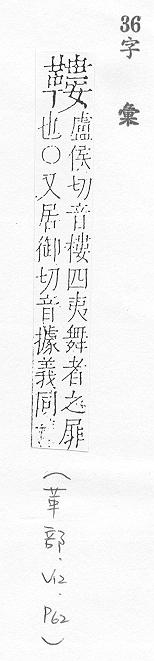 36字彙
鞻
盧侯切音樓四夷舞者之屝
也○又居御切音據義同
(革部．V12．P62)